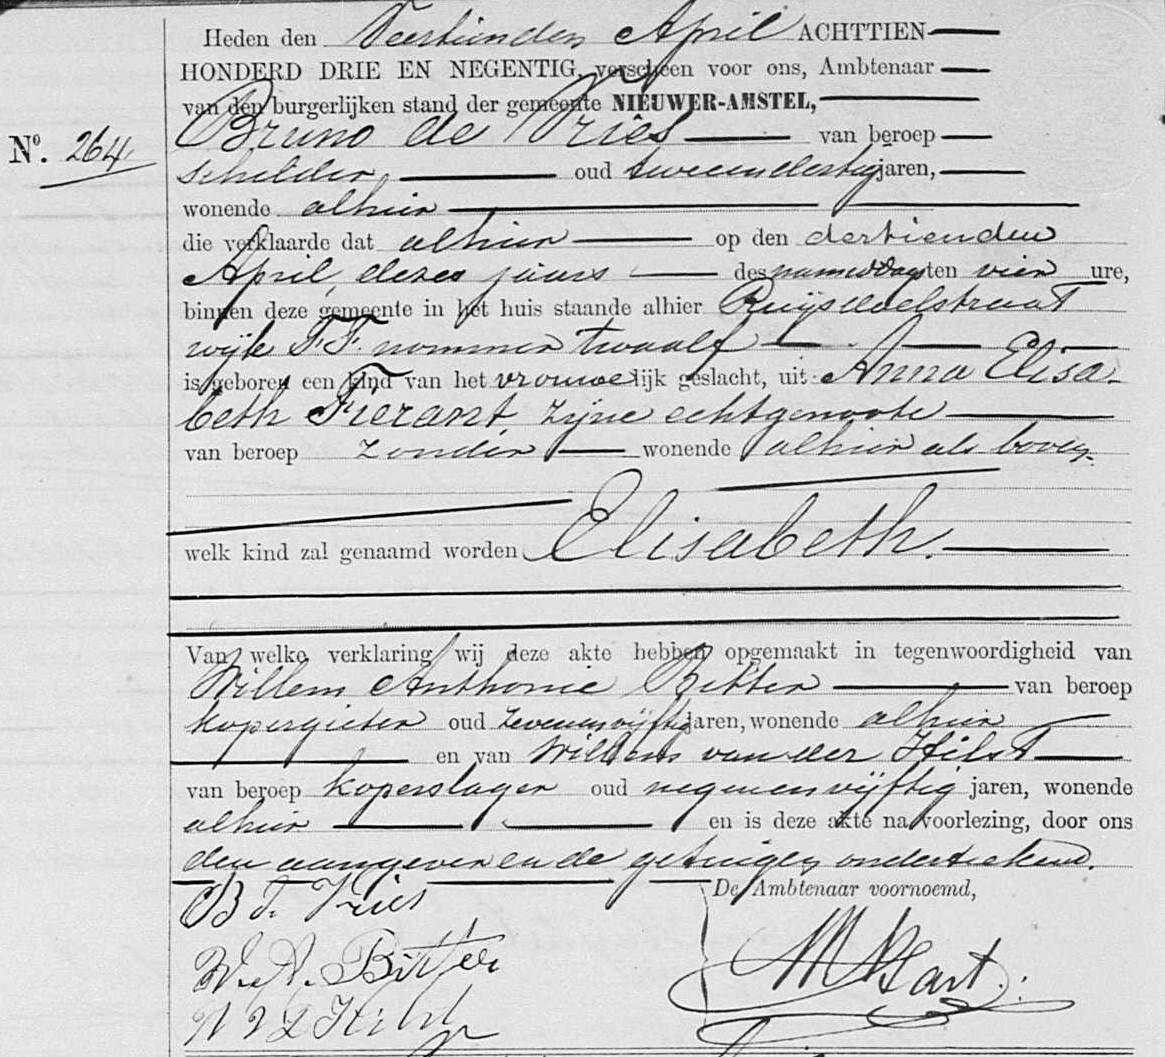 Heden den Veertienden April ACHTTIEN
HONDERD DRIE EN NEGENTIG, verscheen voor ons, Ambtenaar
van den burgerlijken stand der gemeente NIEUWER-AMSTEL,
Nº. 264 Bruno de Vries van beroep
schilder, oud tweeendertig jaren,
wonende alhier
die verklaarde dat alhier op den dertienden
April, dezes jaars des namiddags ten vier ure,
binnen deze gemeente in het huis staande alhier Ruijsdaelstraat
wijk F.F. nommer twaalf
is geboren een kind van het vrouwelijk geslacht, uit Anna Elisa-
beth Fierant, zijne echtgenoote
van beroep zonder wonende alhier als boven,
welk kind zal genaamd worden Elisabeth.
Van welke verklaring wij deze akte hebben opgemaakt in tegenwoordigheid van
Willem Anthonie Bitter van beroep
kopergieter oud zevenenvijftig jaren, wonende alhier
en van Willem van der Hilst
van beroep koperslager oud negenenvijftig jaren, wonende
alhier en is deze akte na voorlezing, door ons
den aangever en de getuigen onderteekend.
De Ambtenaar voornoemd,
B d. Vries
W. A. Bitter